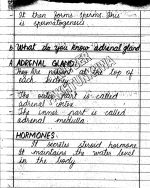 - It then forms sperms. This
is spermatogenesis
Q. What do you know adrenal gland
A ADRENAL GLAND
They are present at the top of
each kidney.
- The outer part is called
adrenal cortex.
- The inner part is called
adrenal medulla.
HORMONES
It secretes steroid hormone.
It maintains the water level
in the body